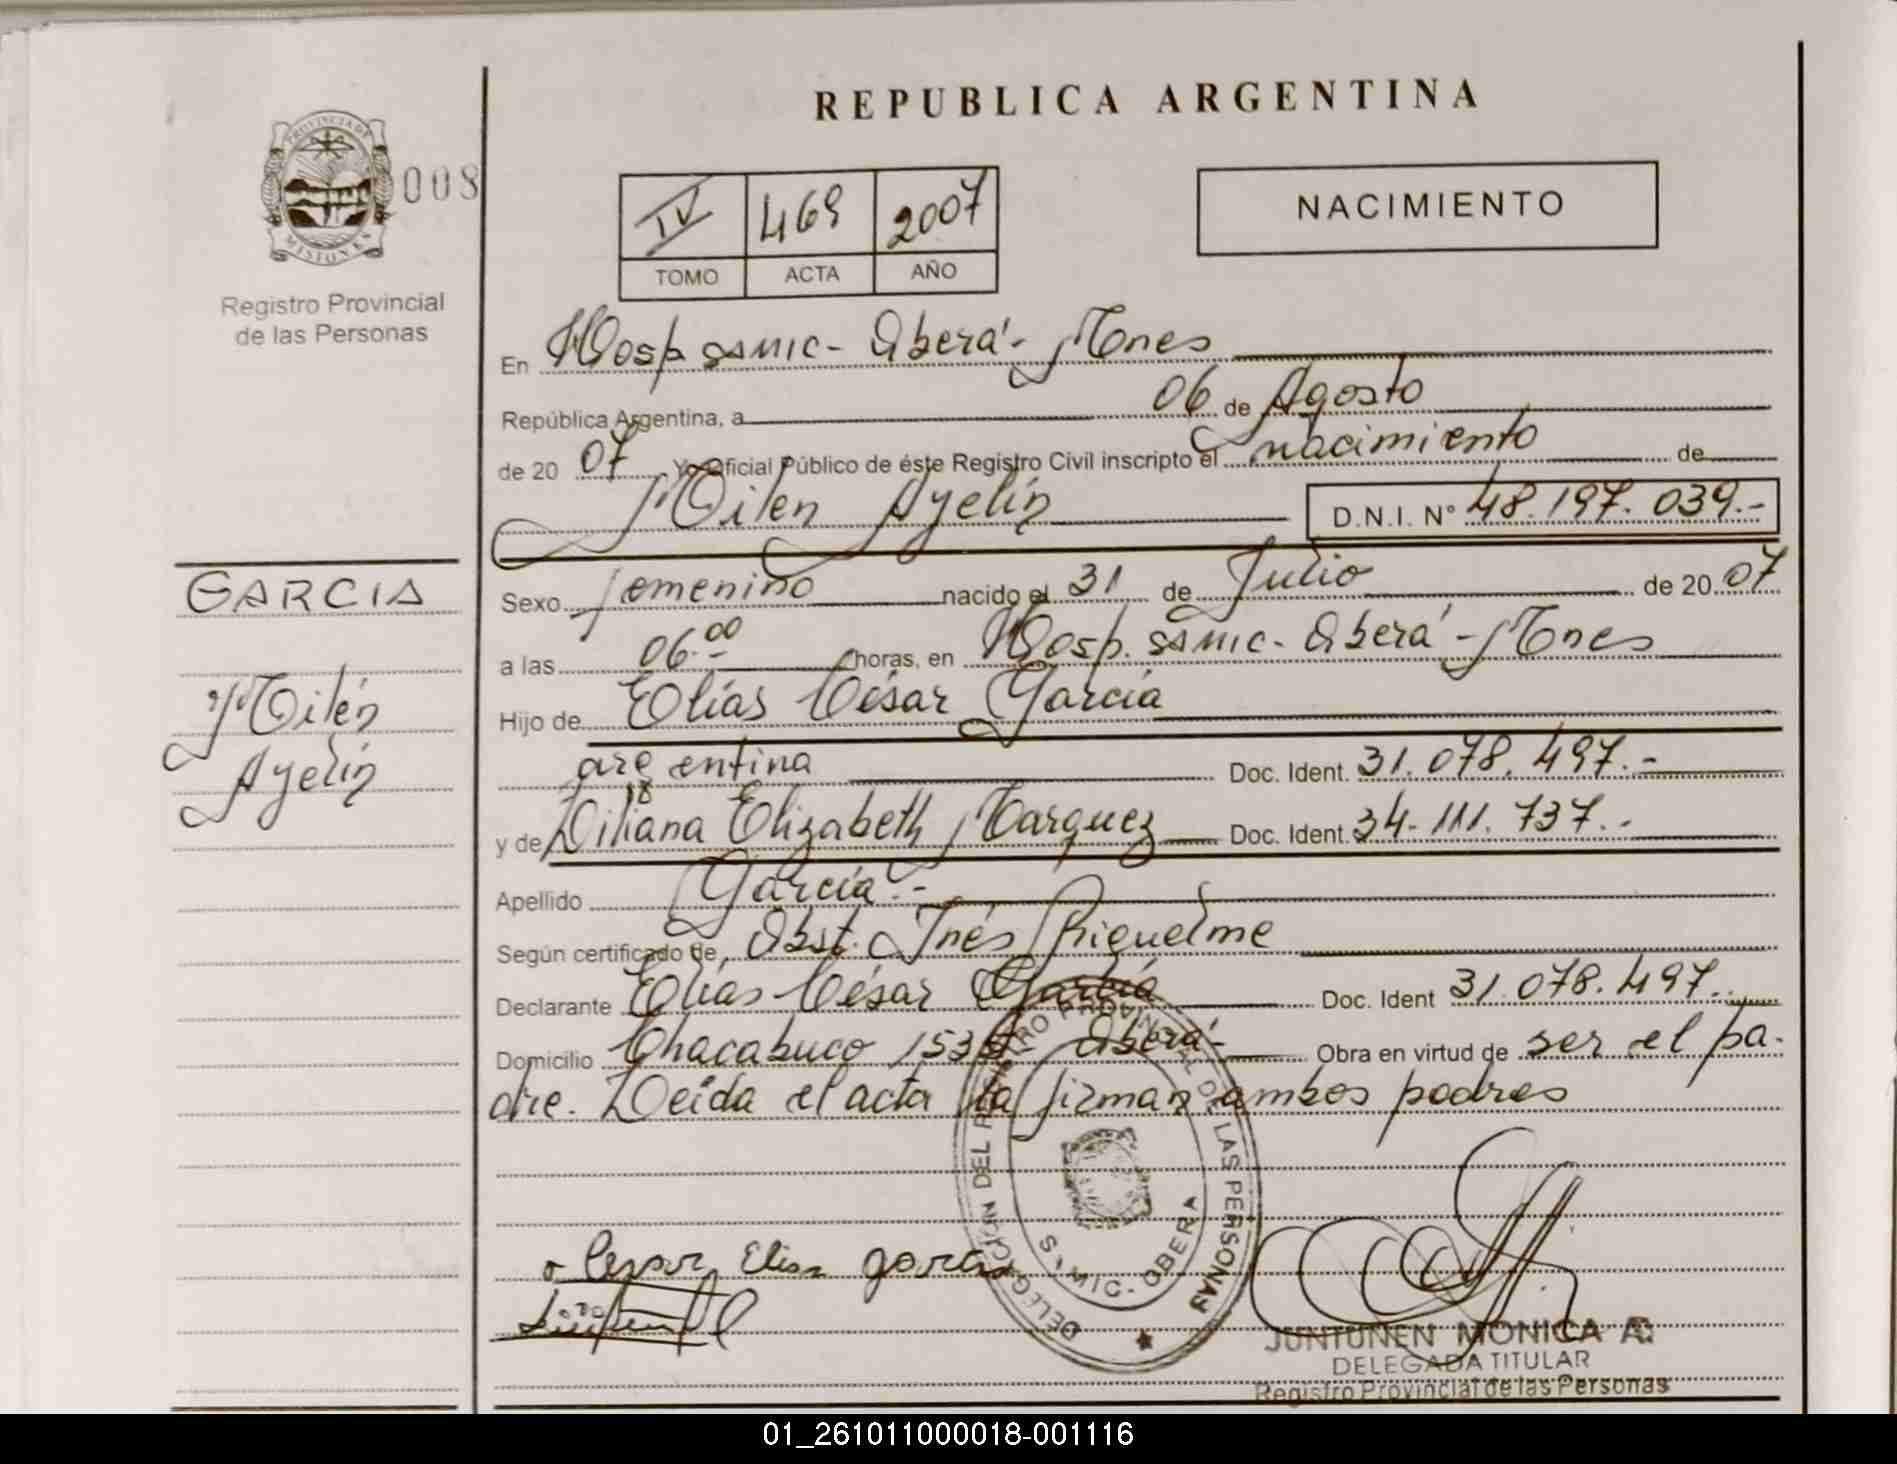 REPUBLICA ARGENTINA
PROVINCIA DE MISIONES
008
Registro Provincial
de las Personas
IV 469 2007
TOMO ACTA AÑO
NACIMIENTO
En Hosp. SAMIC - Oberá - Mnes
República Argentina, a 06 de Agosto
de 20 07 Yo Oficial Público de éste Registro Civil inscripto el nacimiento de
Milen Ayelín D.N.I. N° 48.197.039.-
GARCIA
Milén
Ayelín
Sexo femenino nacido el 31 de Julio de 20 07
a las 06.00 horas, en Hosp. SAMIC - Oberá - Mnes
Hijo de Elías César García
argentina Doc. Ident. 31.078.497.-
y de Liliana Elizabeth Marquez Doc. Ident. 34.111.737.-
Apellido García.-
Según certificado de Obst. Inés Riquelme
Declarante Elías César García Doc. Ident 31.078.497.
Domicilio Chacabuco - Oberá - Obra en virtud de ser el pa-
dre. Leída el acta la firman ambos padres
DELEGACIÓN DEL REGISTRO PROVINCIAL DE LAS PERSONAS
SAMIC - OBERA
Elias garcia
JUNTUNEN MONICA A.
DELEGADA TITULAR
Registro Provincial de las Personas
01_261011000018-001116